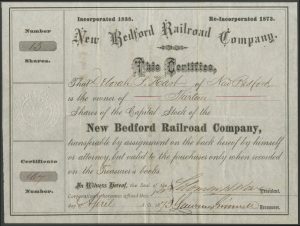 Incorporated 1838.
Re-Incorporated 1873.
Number
13
Shares.
New Bedford Railroad Company.
This Certifies,
That of New Bedford
is the owner of Thirteen
Shares of the Capital Stock of the
New Bedford Railroad Company,
transferable by assignment on the back hereof by himself
or attorney, but valid to the purchaser only when recorded
on the Treasurer's books.
Certificate
Number.
In Witness Hereof, the Seal of the
Corporation
President.
April
Treasurer.